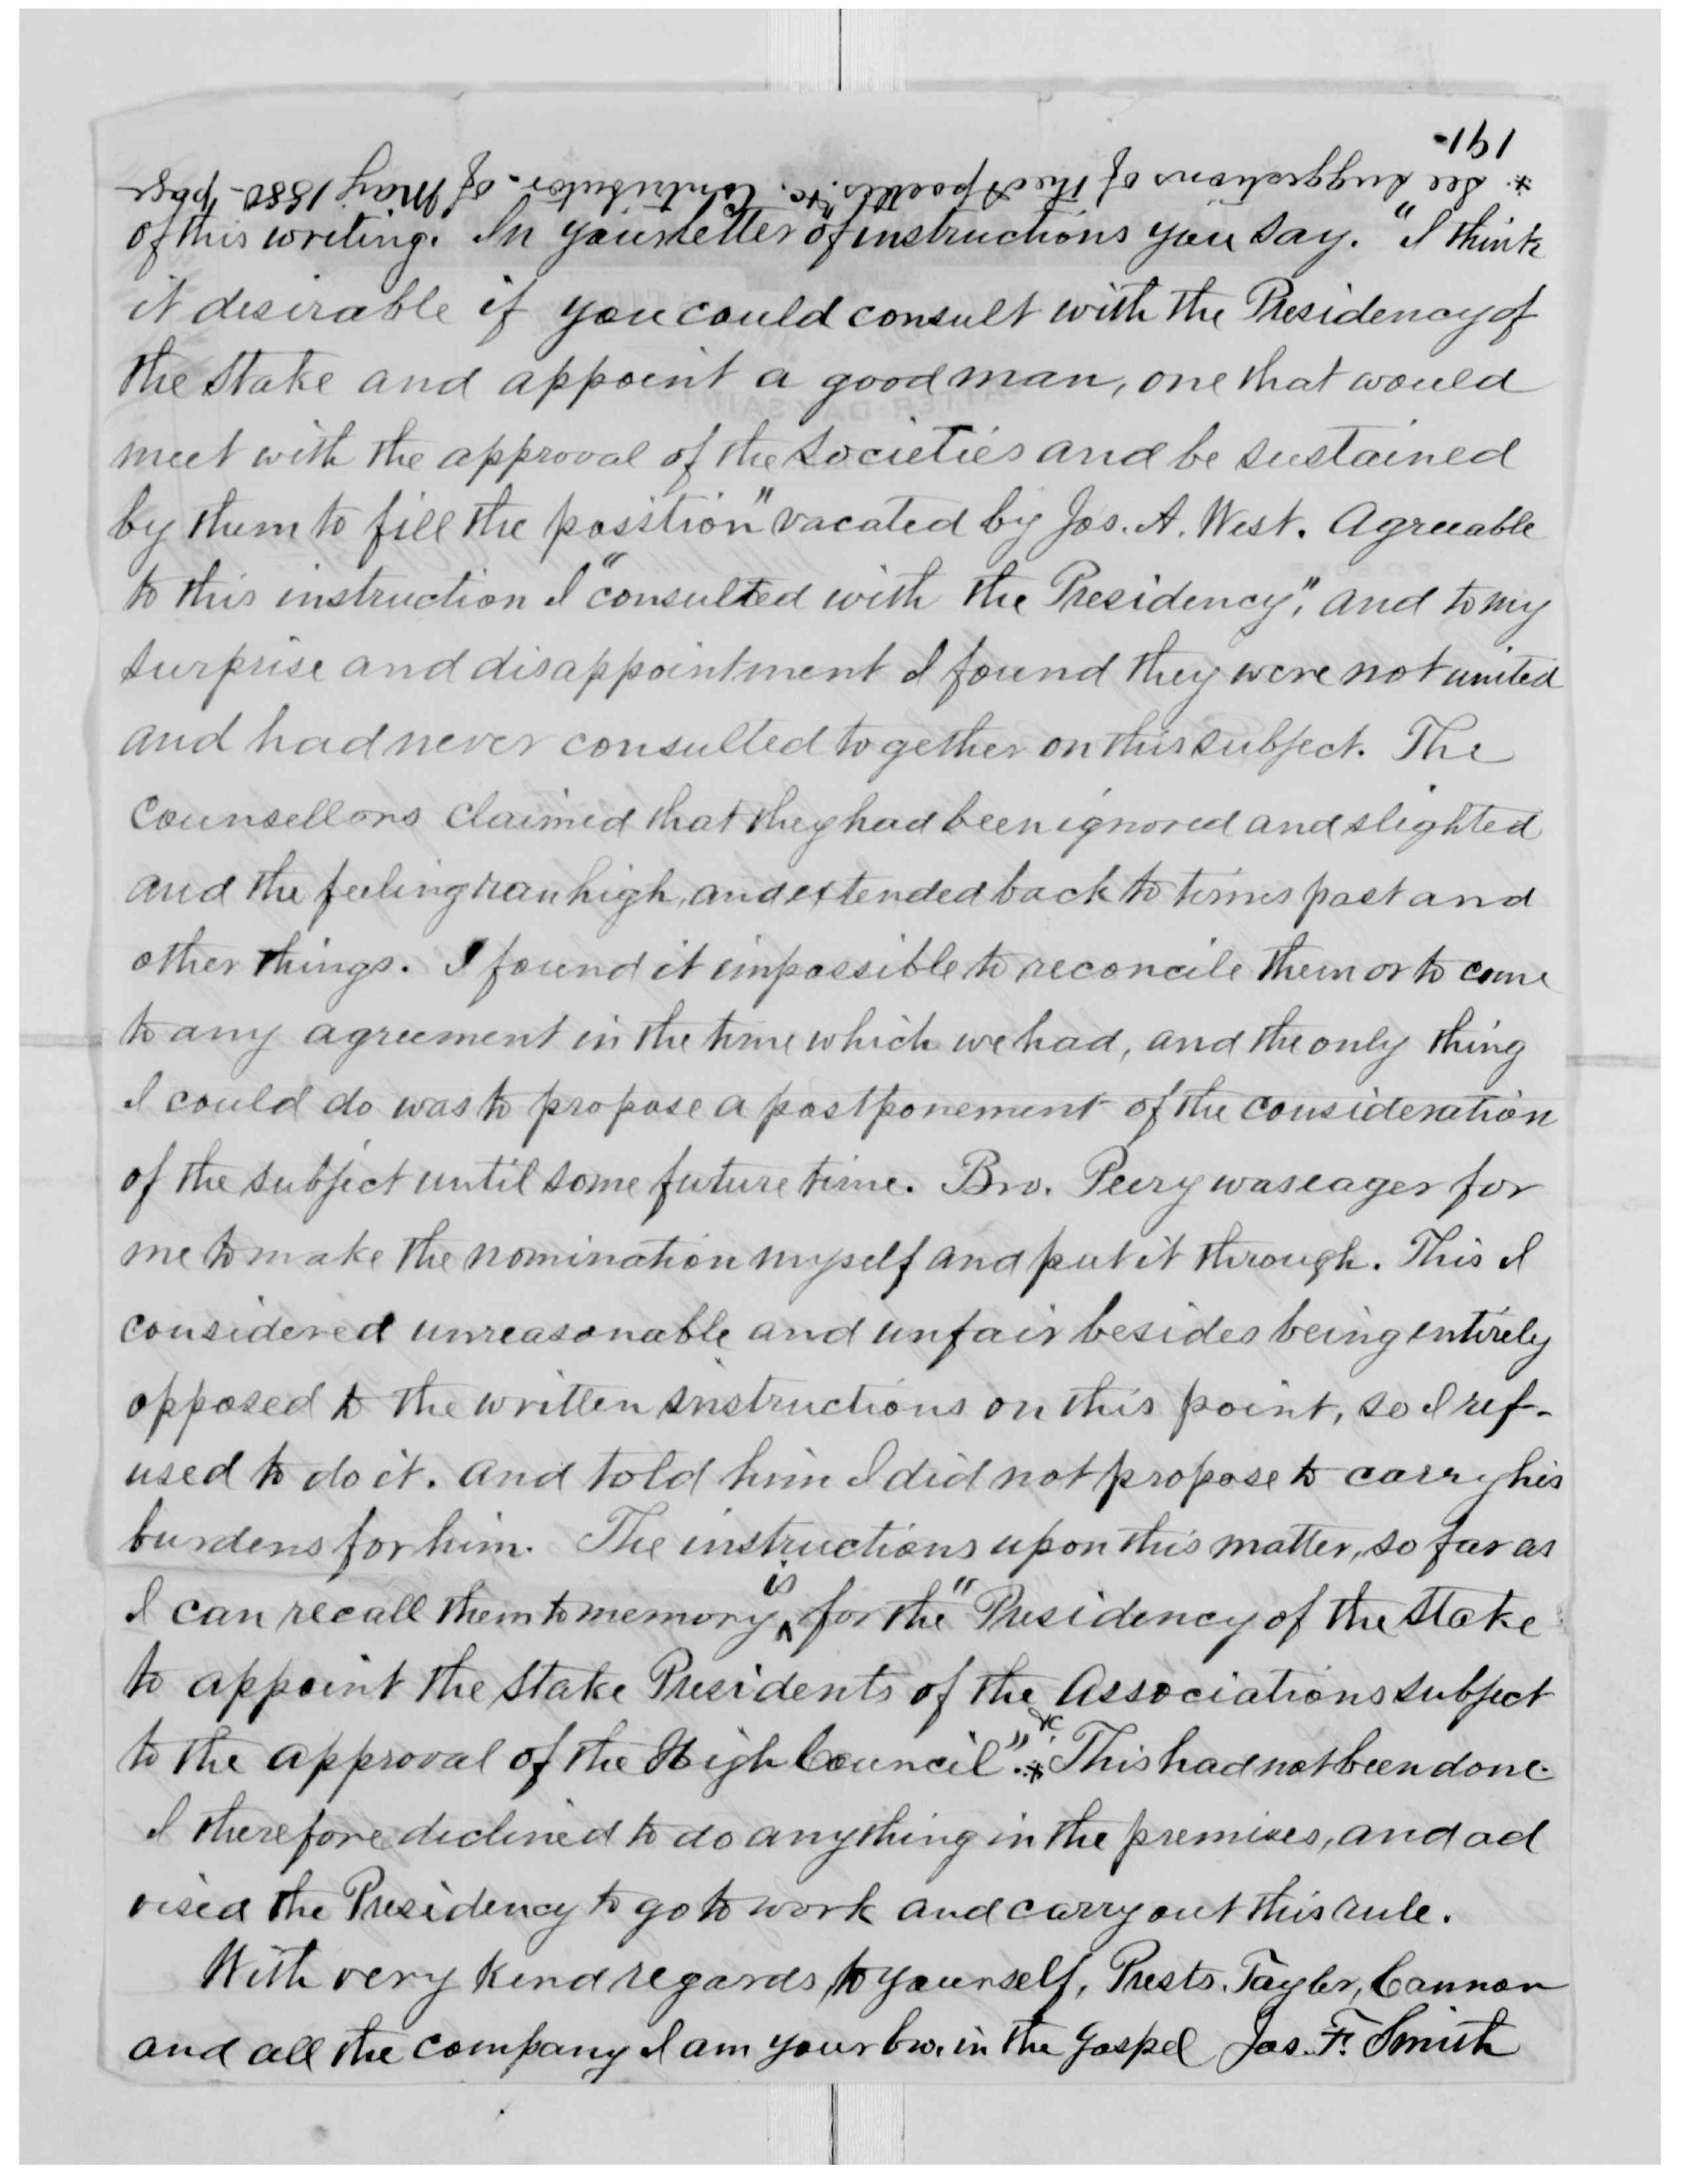 * See suggestions of the Apostles. &c. Contributor. of May 1880 - page
191-
of this writing. In your letter of instructions you say. "I think
it desirable if you could consult with the Presidency of
the Stake and appoint a good man, one that would
meet with the approval of the Societies and be sustained
by them to fill the position" vacated by Jos. A. West. Agreeable
to this instruction I "consulted with the Presidency", and to my
surprise and disappointment I found they were not united
and had never consulted together on this subject. The
Counsellors claimed that they had been ignored and slighted
and the feeling ran high, and extended back to times past and
other things. I found it impossible to reconcile them or to come
to any agreement in the time which we had, and the only thing
I could do was to propose a postponement of the consideration
of the subject until some future time. Bro. Peery was eager for
me to make the nomination myself and put it through. This I
considered unreasonable and unfair besides being entirely
opposed to the written instructions on this point, so I ref-
used to do it. and told him I did not propose to carry his
burdens for him. The instructions upon this matter, so far as
I can recall them to memory ^is for the "Presidency of the Stake
to appoint the Stake Presidents of the Associations subject
to the approval of the High Council" &c. * This had not been done.
I therefore declined to do anything in the premises, and ad
vised the Presidency to go to work and carry out this rule.
With very kind regards to yourself, Prests. Taylor, Cannon
and all the company I am your bro. in the Gospel Jos. F. Smith